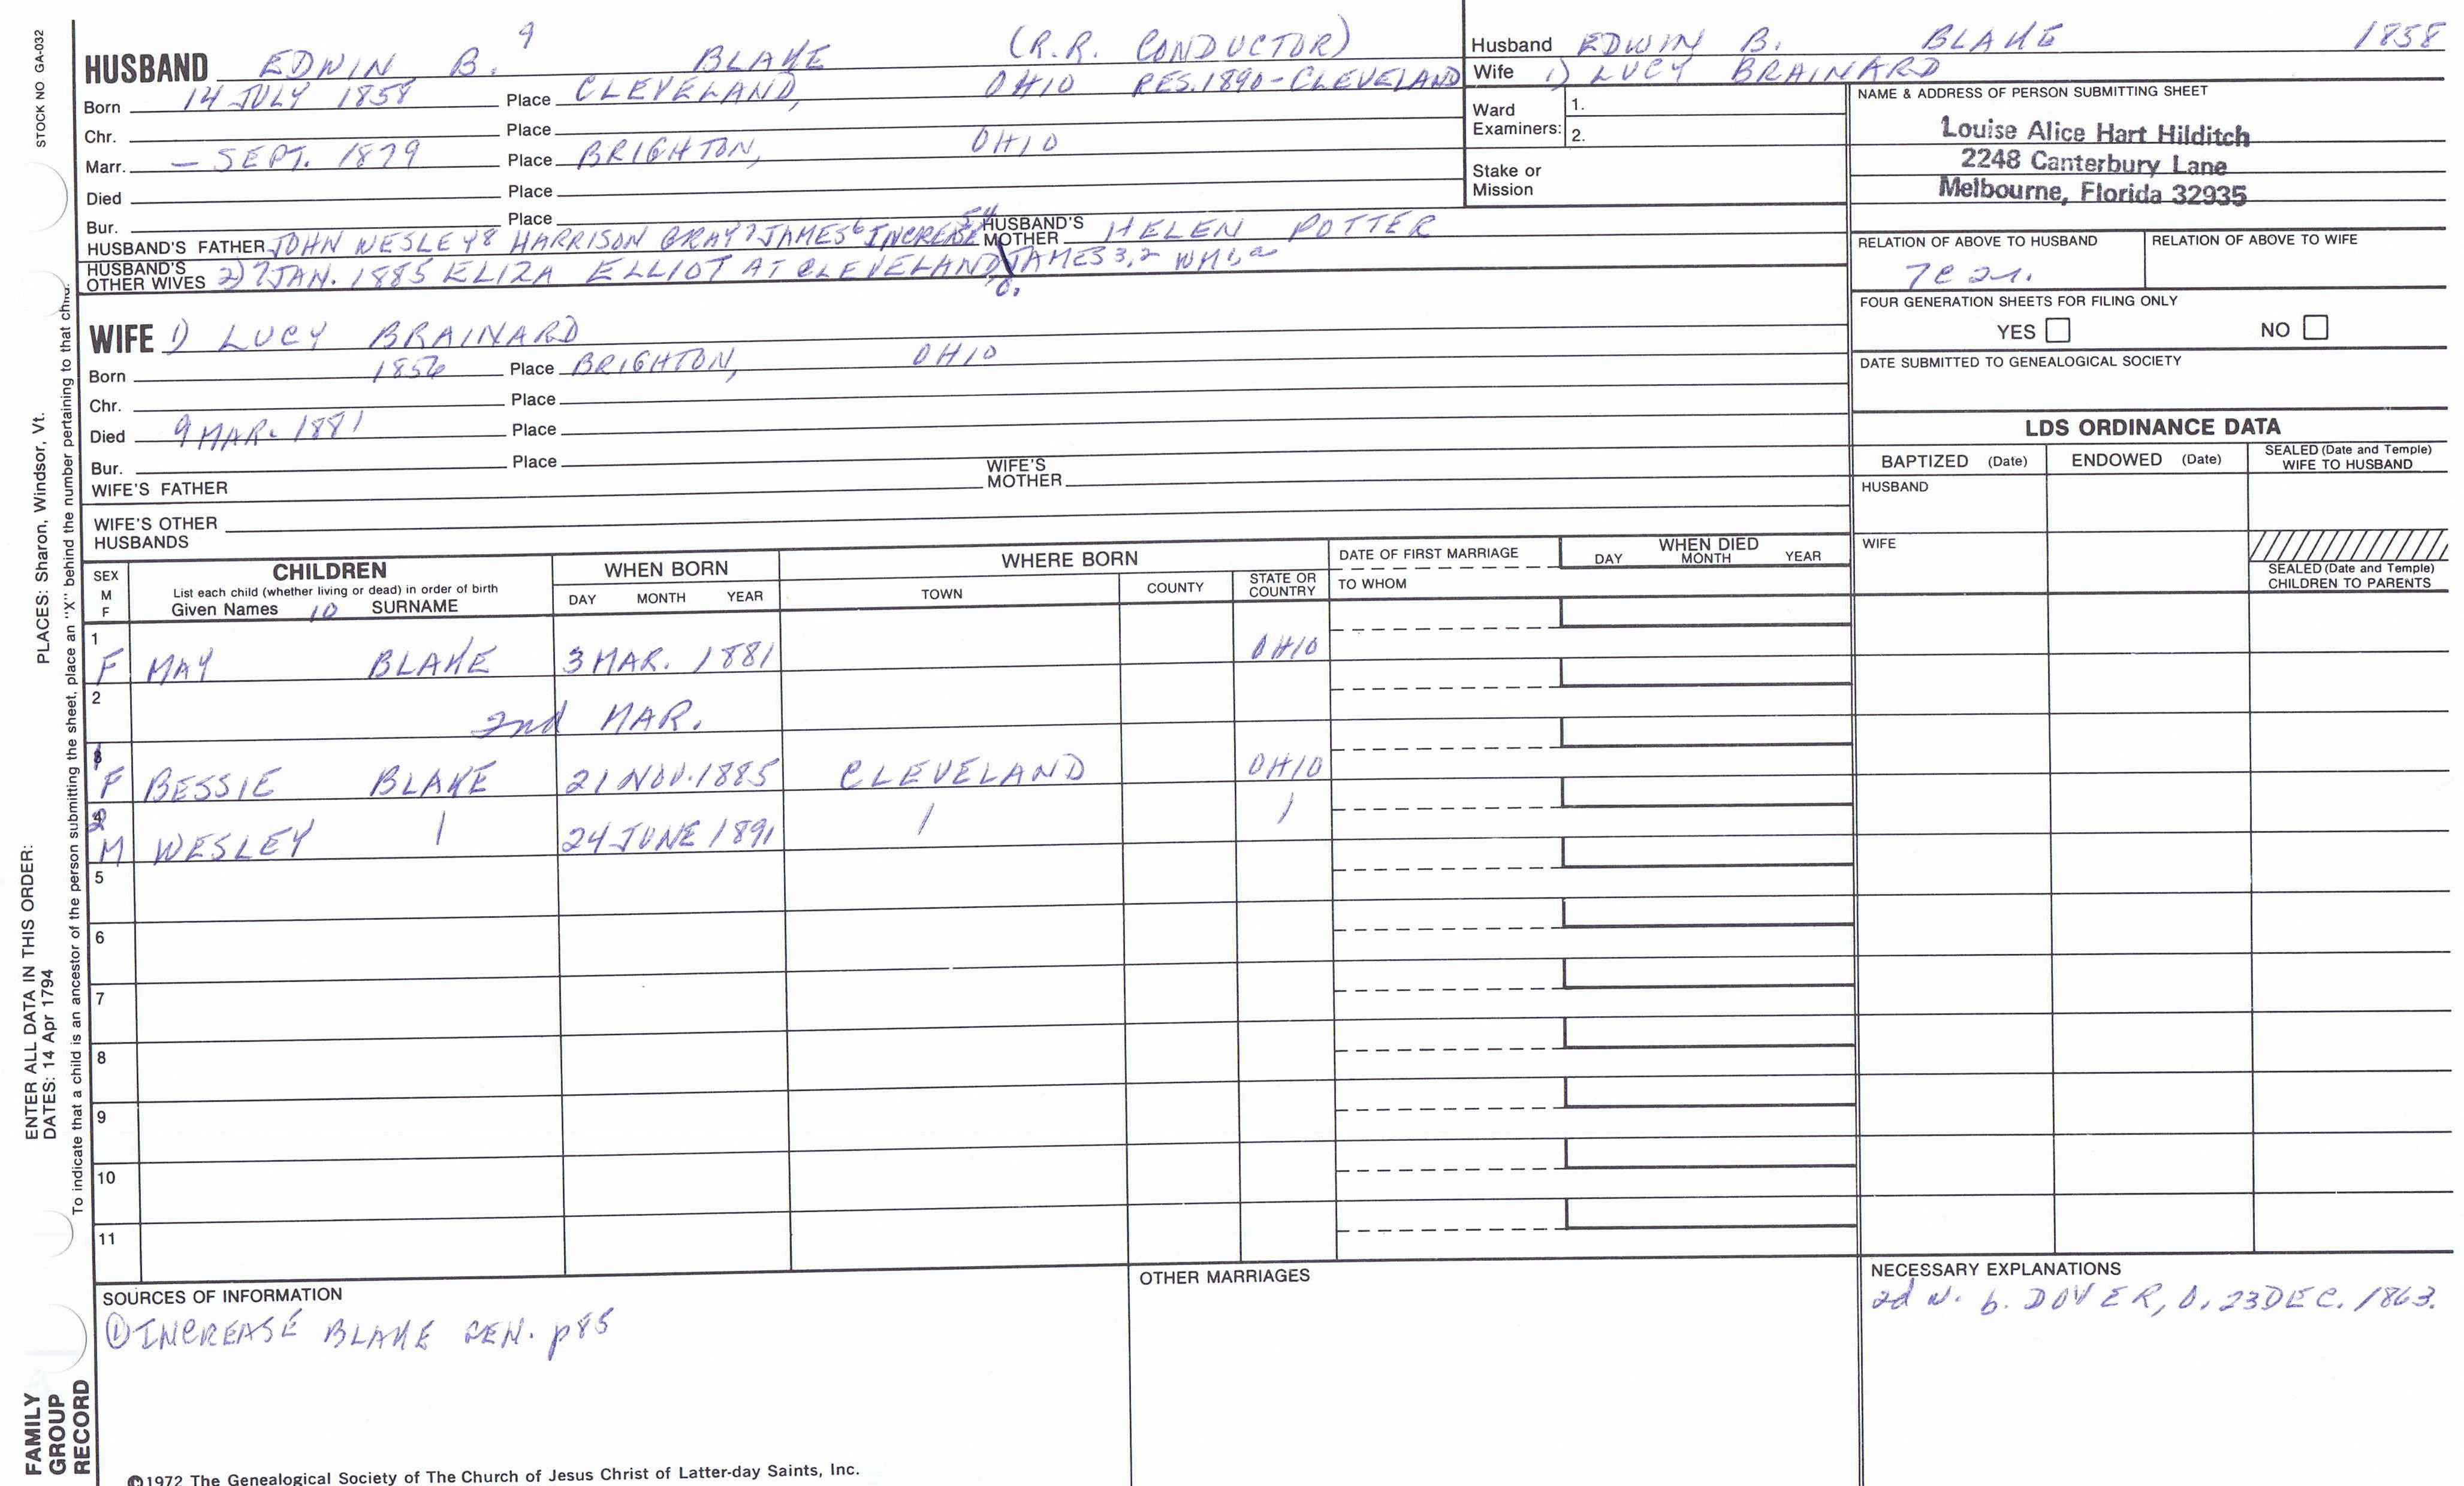 STOCK NO GA-032
HUSBAND EDWIN B. 9 BLAKE (R.R. CONDUCTOR)
Born 14 JULY 1858 Place CLEVELAND, OHIO RES. 1890-CLEVELAND
Chr. Place
Marr. — SEPT. 1879 Place BRIGHTON, OHIO
Died Place
Bur. Place
HUSBAND'S FATHER JOHN WESLEY 8 HARRISON GRAY 7 JAMES 6 INCREASE 5,4 HUSBAND'S MOTHER HELEN POTTER
HUSBAND'S OTHER WIVES 2) 7 JAN. 1885 ELIZA ELLIOT AT CLEVELAND, O. JAMES 3,2 WM 1,a
WIFE 1) LUCY BRAINARD
Born 1856 Place BRIGHTON, OHIO
Chr. Place
Died 9 MAR. 1881 Place
Bur. Place
WIFE'S FATHER WIFE'S MOTHER
WIFE'S OTHER HUSBANDS
Husband EDWIN B. BLAKE 1858
Wife 1) LUCY BRAINARD
Ward Examiners: 1.
2.
Stake or Mission
NAME & ADDRESS OF PERSON SUBMITTING SHEET
Louise Alice Hart Hilditch
2248 Canterbury Lane
Melbourne, Florida 32935
RELATION OF ABOVE TO HUSBAND RELATION OF ABOVE TO WIFE
7C 2r.
FOUR GENERATION SHEETS FOR FILING ONLY
YES NO
DATE SUBMITTED TO GENEALOGICAL SOCIETY
LDS ORDINANCE DATA
BAPTIZED (Date) ENDOWED (Date) SEALED (Date and Temple) WIFE TO HUSBAND
HUSBAND
WIFE
SEALED (Date and Temple) CHILDREN TO PARENTS
SEX M F CHILDREN WHEN BORN WHERE BORN DATE OF FIRST MARRIAGE WHEN DIED
List each child (whether living or dead) in order of birth
Given Names 10 SURNAME DAY MONTH YEAR TOWN COUNTY STATE OR COUNTRY TO WHOM DAY MONTH YEAR
1 F MAY BLAKE 3 MAR. 1881 OHIO
2 2nd MAR.
1 F BESSIE BLAKE 21 NOV. 1885 CLEVELAND OHIO
2 M WESLEY | 24 JUNE 1891 | |
5
6
7
8
9
10
11
SOURCES OF INFORMATION
① INCREASE BLAKE GEN. p85
OTHER MARRIAGES
NECESSARY EXPLANATIONS
2d W. b. DOVER, O. 23 DEC. 1863.
©1972 The Genealogical Society of The Church of Jesus Christ of Latter-day Saints, Inc.
FAMILY GROUP RECORD
ENTER ALL DATA IN THIS ORDER:
DATES: 14 Apr 1794 PLACES: Sharon, Windsor, Vt.
To indicate that a child is an ancestor of the person submitting the sheet, place an "X" behind the number pertaining to that child.